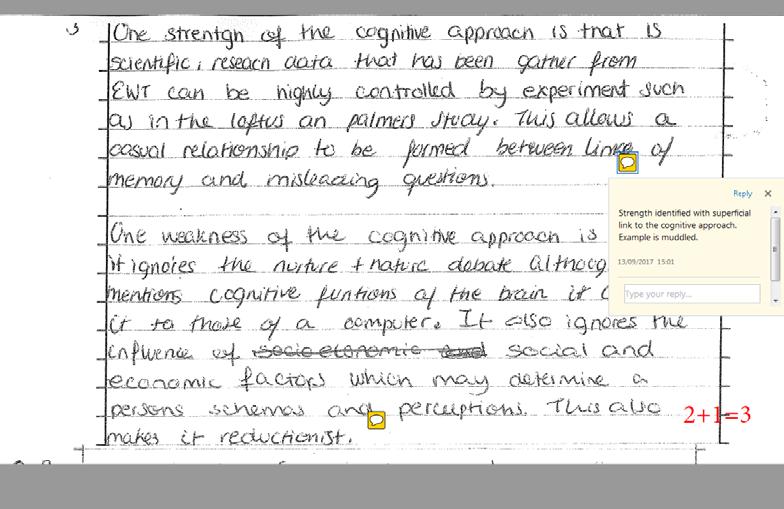 One strentgh of the cognitive approach is that is
scientific, reseach data that has been gather from
EWT can be highly controlled by experiment such
as in the loftus an palmers study. This allows a
casual relationship to be formed between of
memory and misleading questions.
Reply
Strength identified with superficial
link to the cognitive approach.
Example is muddled.
13/09/2017 15:01
Type your reply...
One weakness of the cognitive approach is
it ignores the nurture + nature debate
mentions cognitive funtions of the brain it
it to those of a computer. It also ignores the
influence of social and
economic factors which may determine a
persons schemas and perceptions. This also
2+1=3
makes it reductionist.